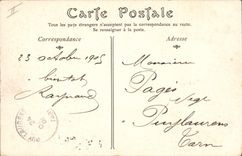 Carte Postale
Tous les pays étrangers n'acceptent pas la correspondance au recto.
Se renseigner à la poste.
Correspondance
Adresse
23 octobre 1905
bientot
Raynaud
Monsieur
Pagès
Puylaurens
Tarn